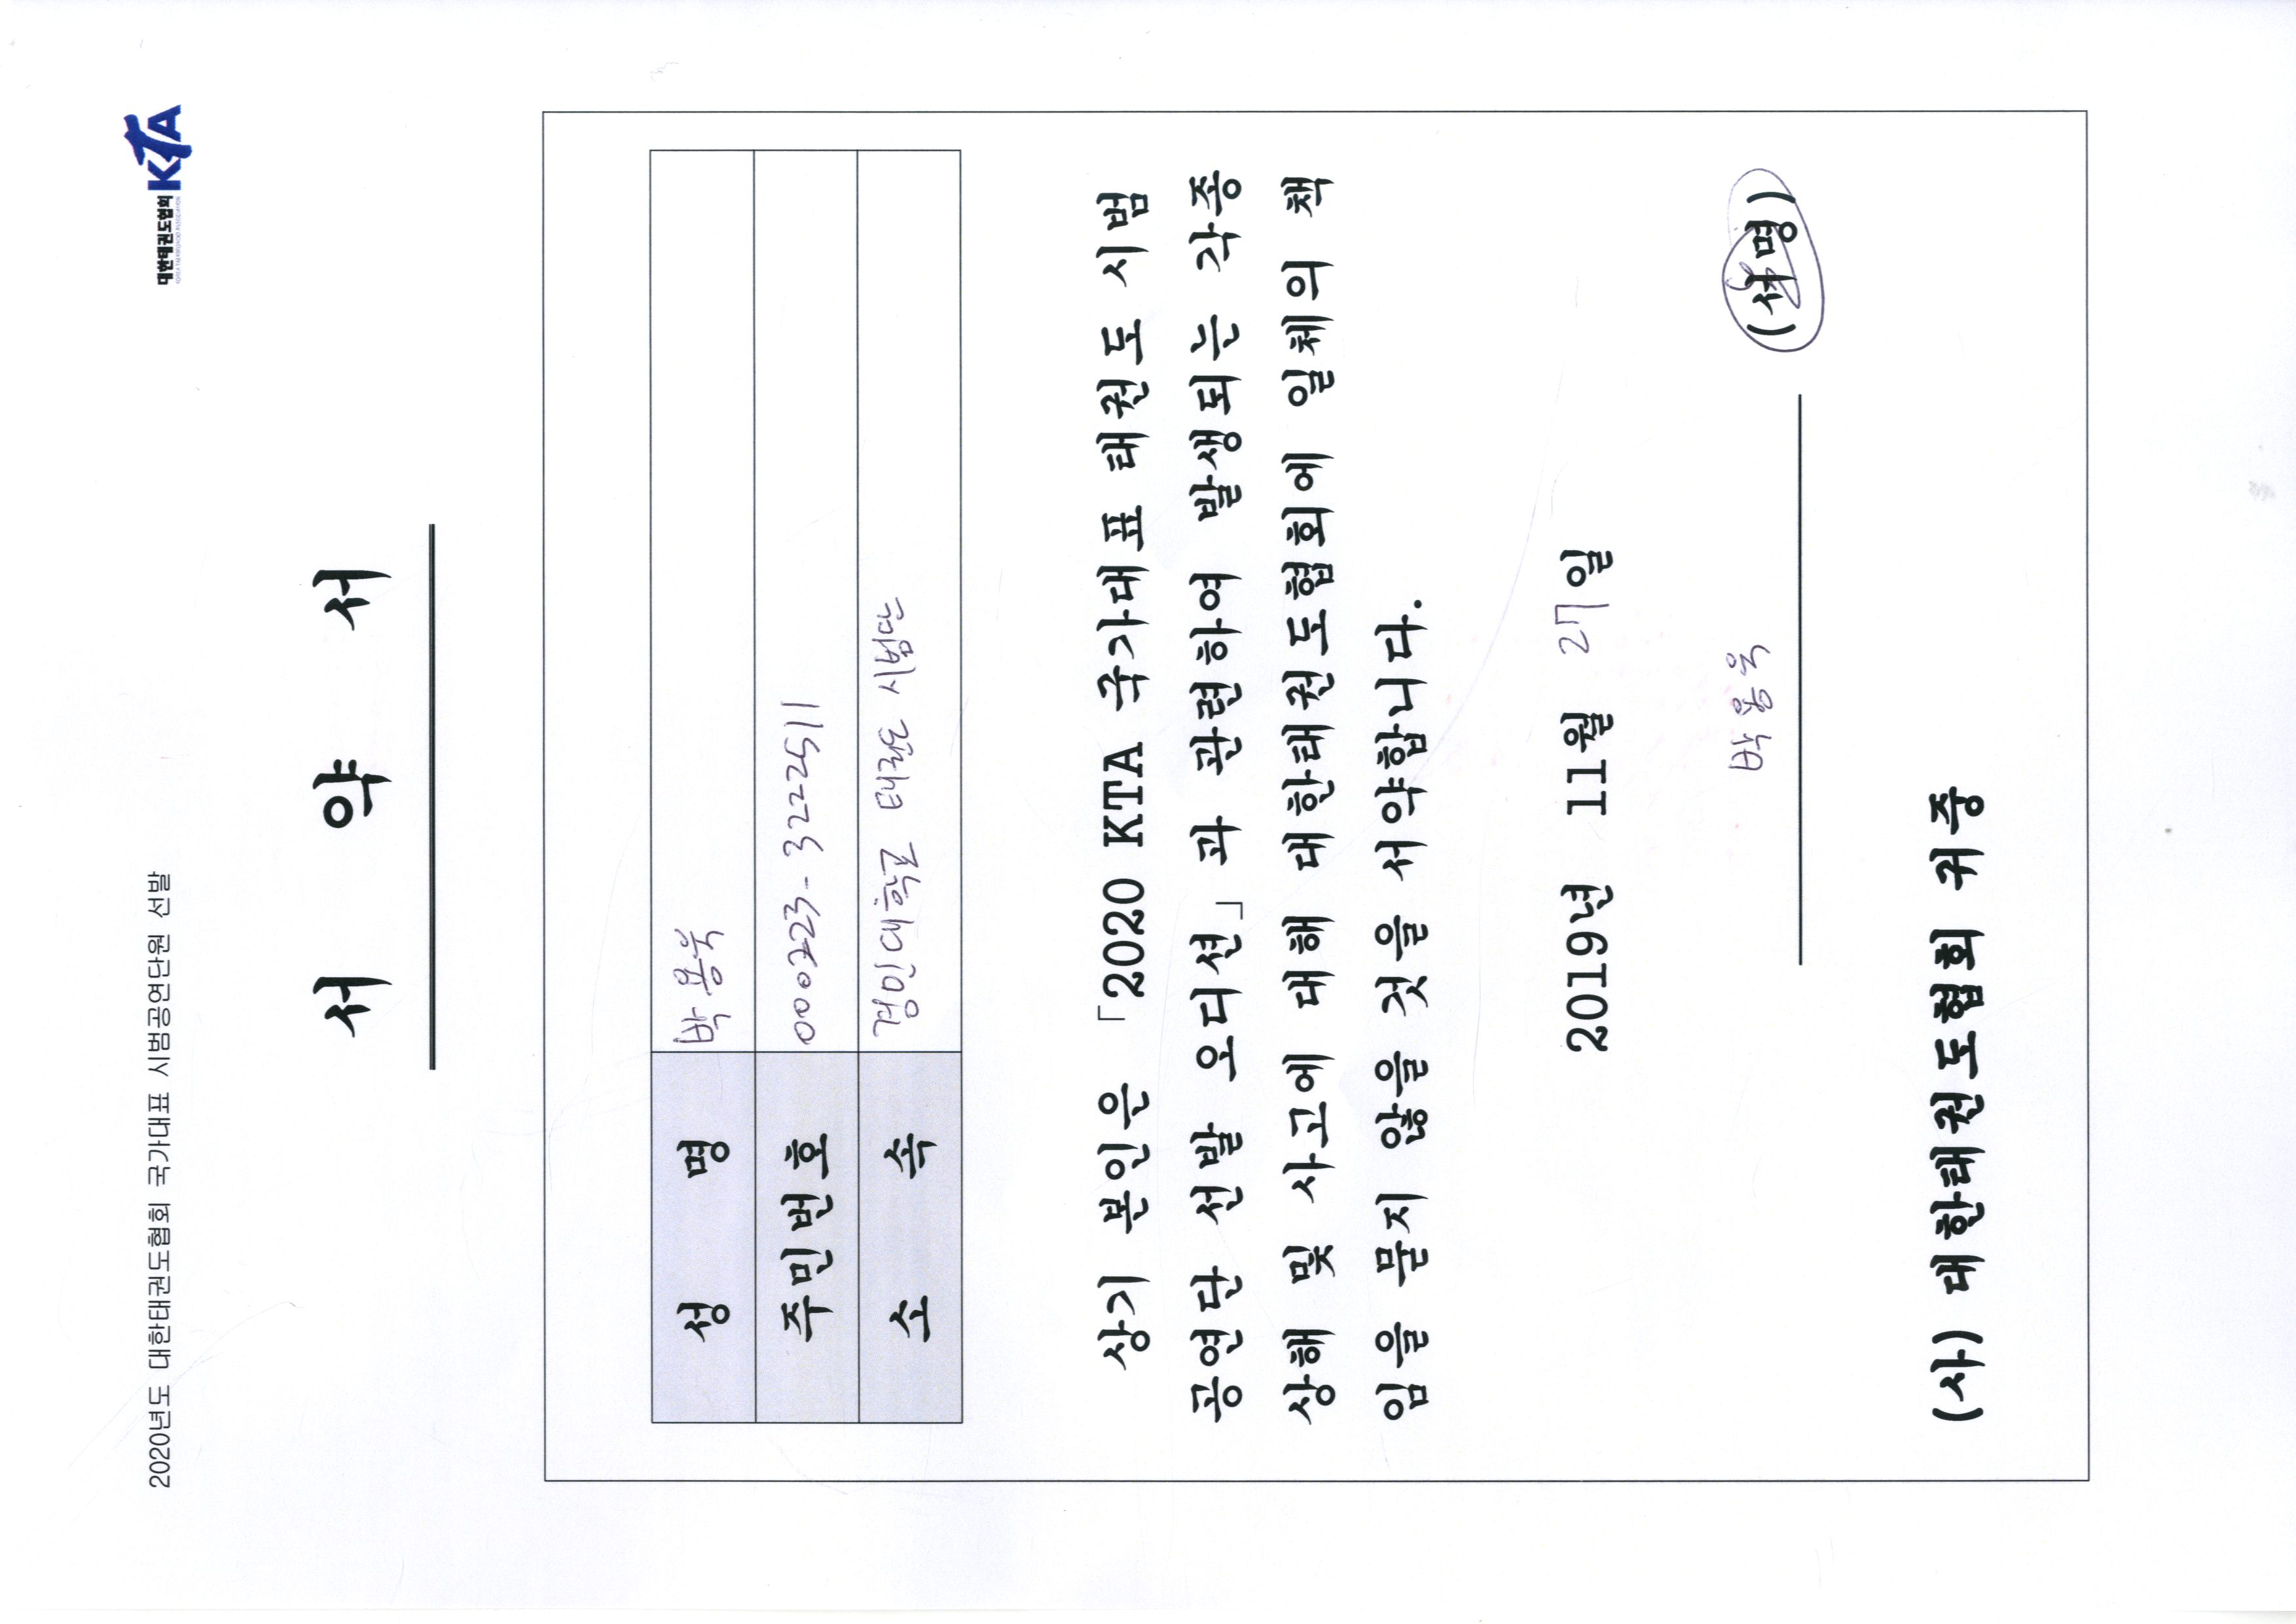 2020년도 대한태권도협회 국가대표 시범공연단원 선발
대한태권도협회 KTA
KOREA TAEKWONDO ASSOCIATION
서 약 서
성 명 박용욱
주민번호 000723-3222511
소 속 경민대학교 태권도 시범단
상기 본인은 「2020 KTA 국가대표 태권도 시범
공연단 선발 오디션」과 관련하여 발생되는 각종
상해 및 사고에 대해 대한태권도협회에 일체의 책
임을 묻지 않을 것을 서약합니다.
2019년 11월 27일
박용욱 (서명)
(사)대한태권도협회 귀중